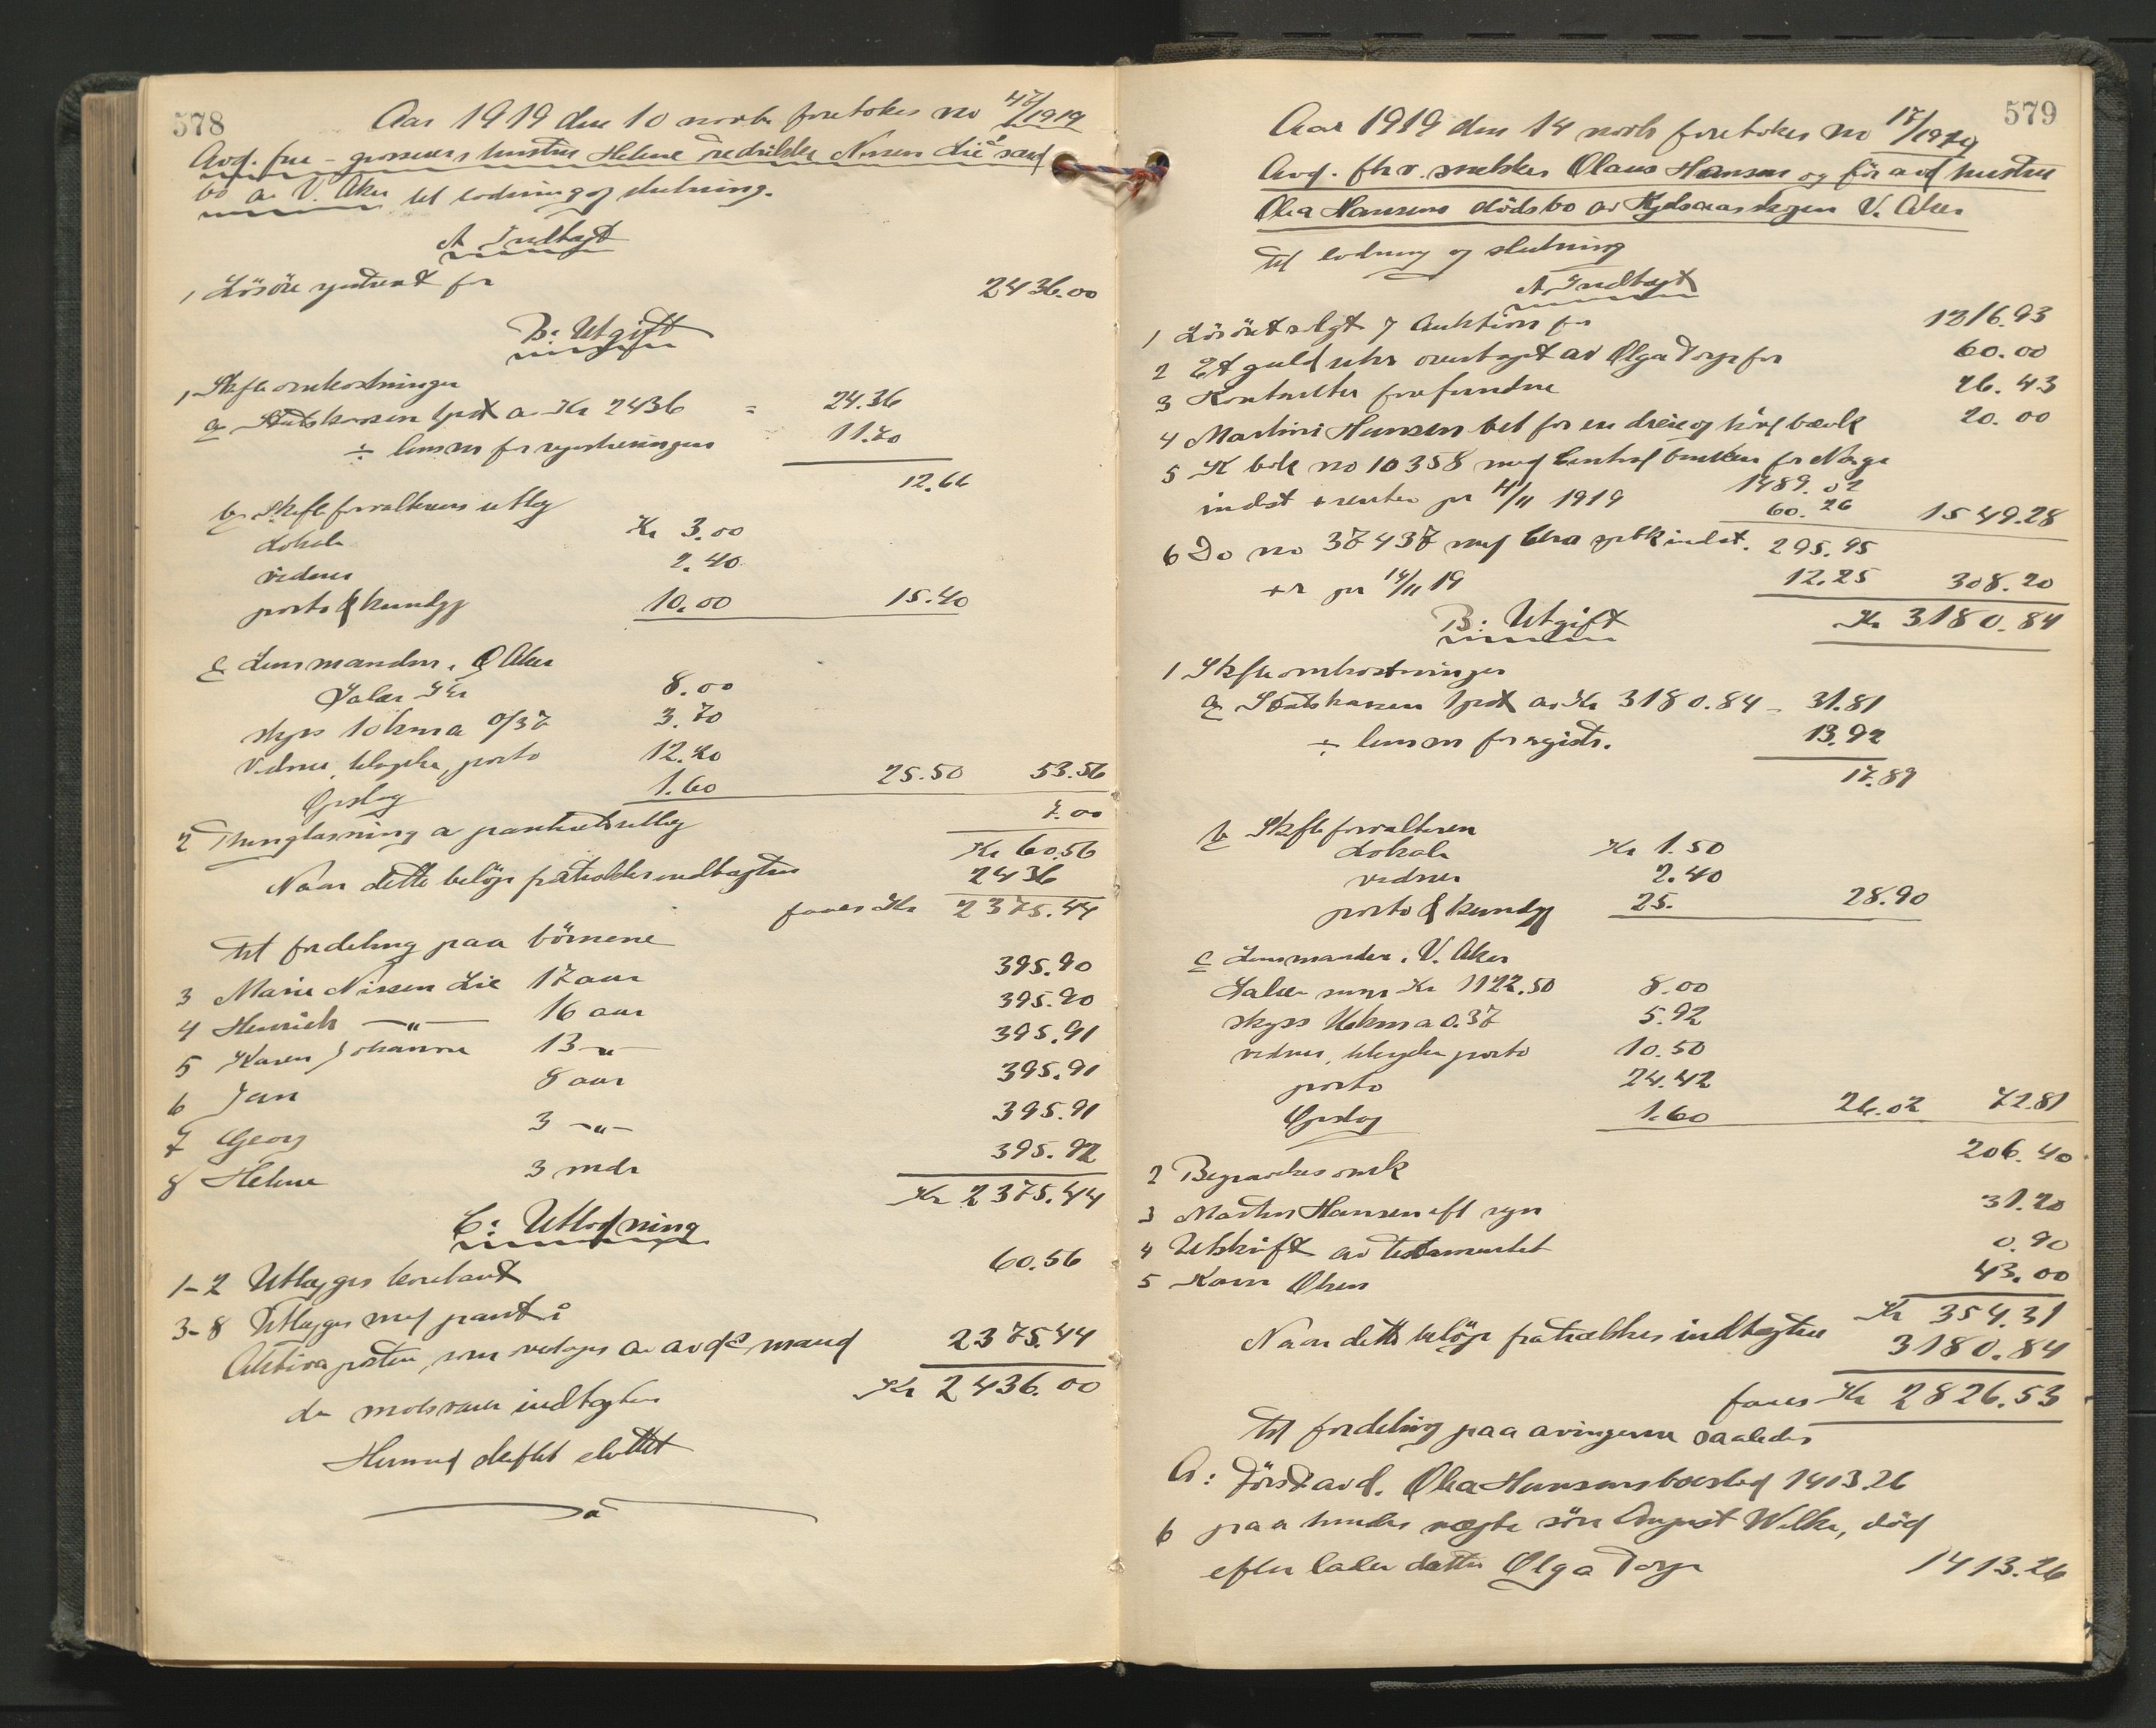 578
Aar 1919 den 10 novbr foretokes no 47/1919
Avd. frue - grosserer hustru Helene Fredrikke Nissen Lie's saml
bo av V. Aker til lodning og slutning.
A Indtægt
1 Lösöre registrert for 2436.00
B: Utgift
1 Skifteomkostninger
a Statskassen 1 pct a Kr 2436 = 24.36
÷ lensm for registreringen 11.70
12.66
b Skifteforvalterens utlæg
Lokale Kr 3.00
vidner 2.40
porto & kundgj 10.00 15.40
c Lensmanden i Ö Aker
Salær Kr 8.00
skyss 10 km a 0/37 3.70
Vidner, telegrifer, porto 12.20
Opslag 1.60 25.50 53.56
2 Thinglæsning a panteutlæg 7.00
Kr 60.56
Naar dette belöp fratrækkes indtægten 2436
faaes Kr 2375.44
til fordeling paa börnene
3 Marie Nissen Lie 17 aar 395.90
4 Henrich —„— 16 aar 395.90
5 Karen Johanne 13 —„— 395.91
6 Jan 8 aar 395.91
7 Georg 3 —„— 395.91
8 Helene 3 mdr 395.92
Kr 2375.44
C: Utlodning
1-2 Utlægges kontant 60.56
3-8 Utlægges med pant i
Aktiva posten, som overtages av avd^s mand 2375.44
der motsvarer indtægten Kr 2436.00
Hermed skiftet sluttet
579
Aar 1919 den 14 novb foretokes no 17/1919
Avd. fhv. snekker Olaus Hansen og för avd hustru
Olea Hansens dödsbo av Kjelsaasskogen V. Aker
til lodning og slutning
A Indtægt
1 Lösöret solgt v Auktion for 1216.93
2 Et guld uhr overtaget av Olga Torp for 60.00
3 Kontanter forefundne 26.43
4 Martini Hansen bet for en dreie og hövelbænk 20.00
5 K bok no 10358 med Centralbanken for Norge 1489.02
indst + renter pr 14/11 1919 60.26 1549.28
6 Do no 37437 med Chra spbk indst. 295.95
+ r pr 14/11 19 12.25 308.20
Kr 3180.84
B: Utgift
1 Skifteomkostninger
a Statskassen 1 pct av Kr 3180.84 – 31.81
÷ lensm for registr. 13.92
17.89
b Skifteforvalteren
Lokale Kr 1.50
vidner 2.40
porto & kundgj 25. 28.90
c Lensmanden i V. Aker
Salær sum Kr 1122.50 8.00
skyss 16 km a 0.37 5.92
vidner, telegrifer porto 10.50
porto 24.42
Opslag 1.60 26.02 72.81
2 Begravelses omk 206.40
3 Martin Hansen eft regn 31.20
4 Utskrift av testamentet 0.90
5 Karen Olsen 43.00
Kr 354.31
Naar dette belöp fratrækkes indtægten 3180.84
faaes Kr 2826.53
til fordeling paa arvingerne saaledes
A: Först avd. Olea Hansens boeslod 1413.26
6 paa hendes uegte sön August Wilke, död
efterlater datter Olga Torp 1413.26